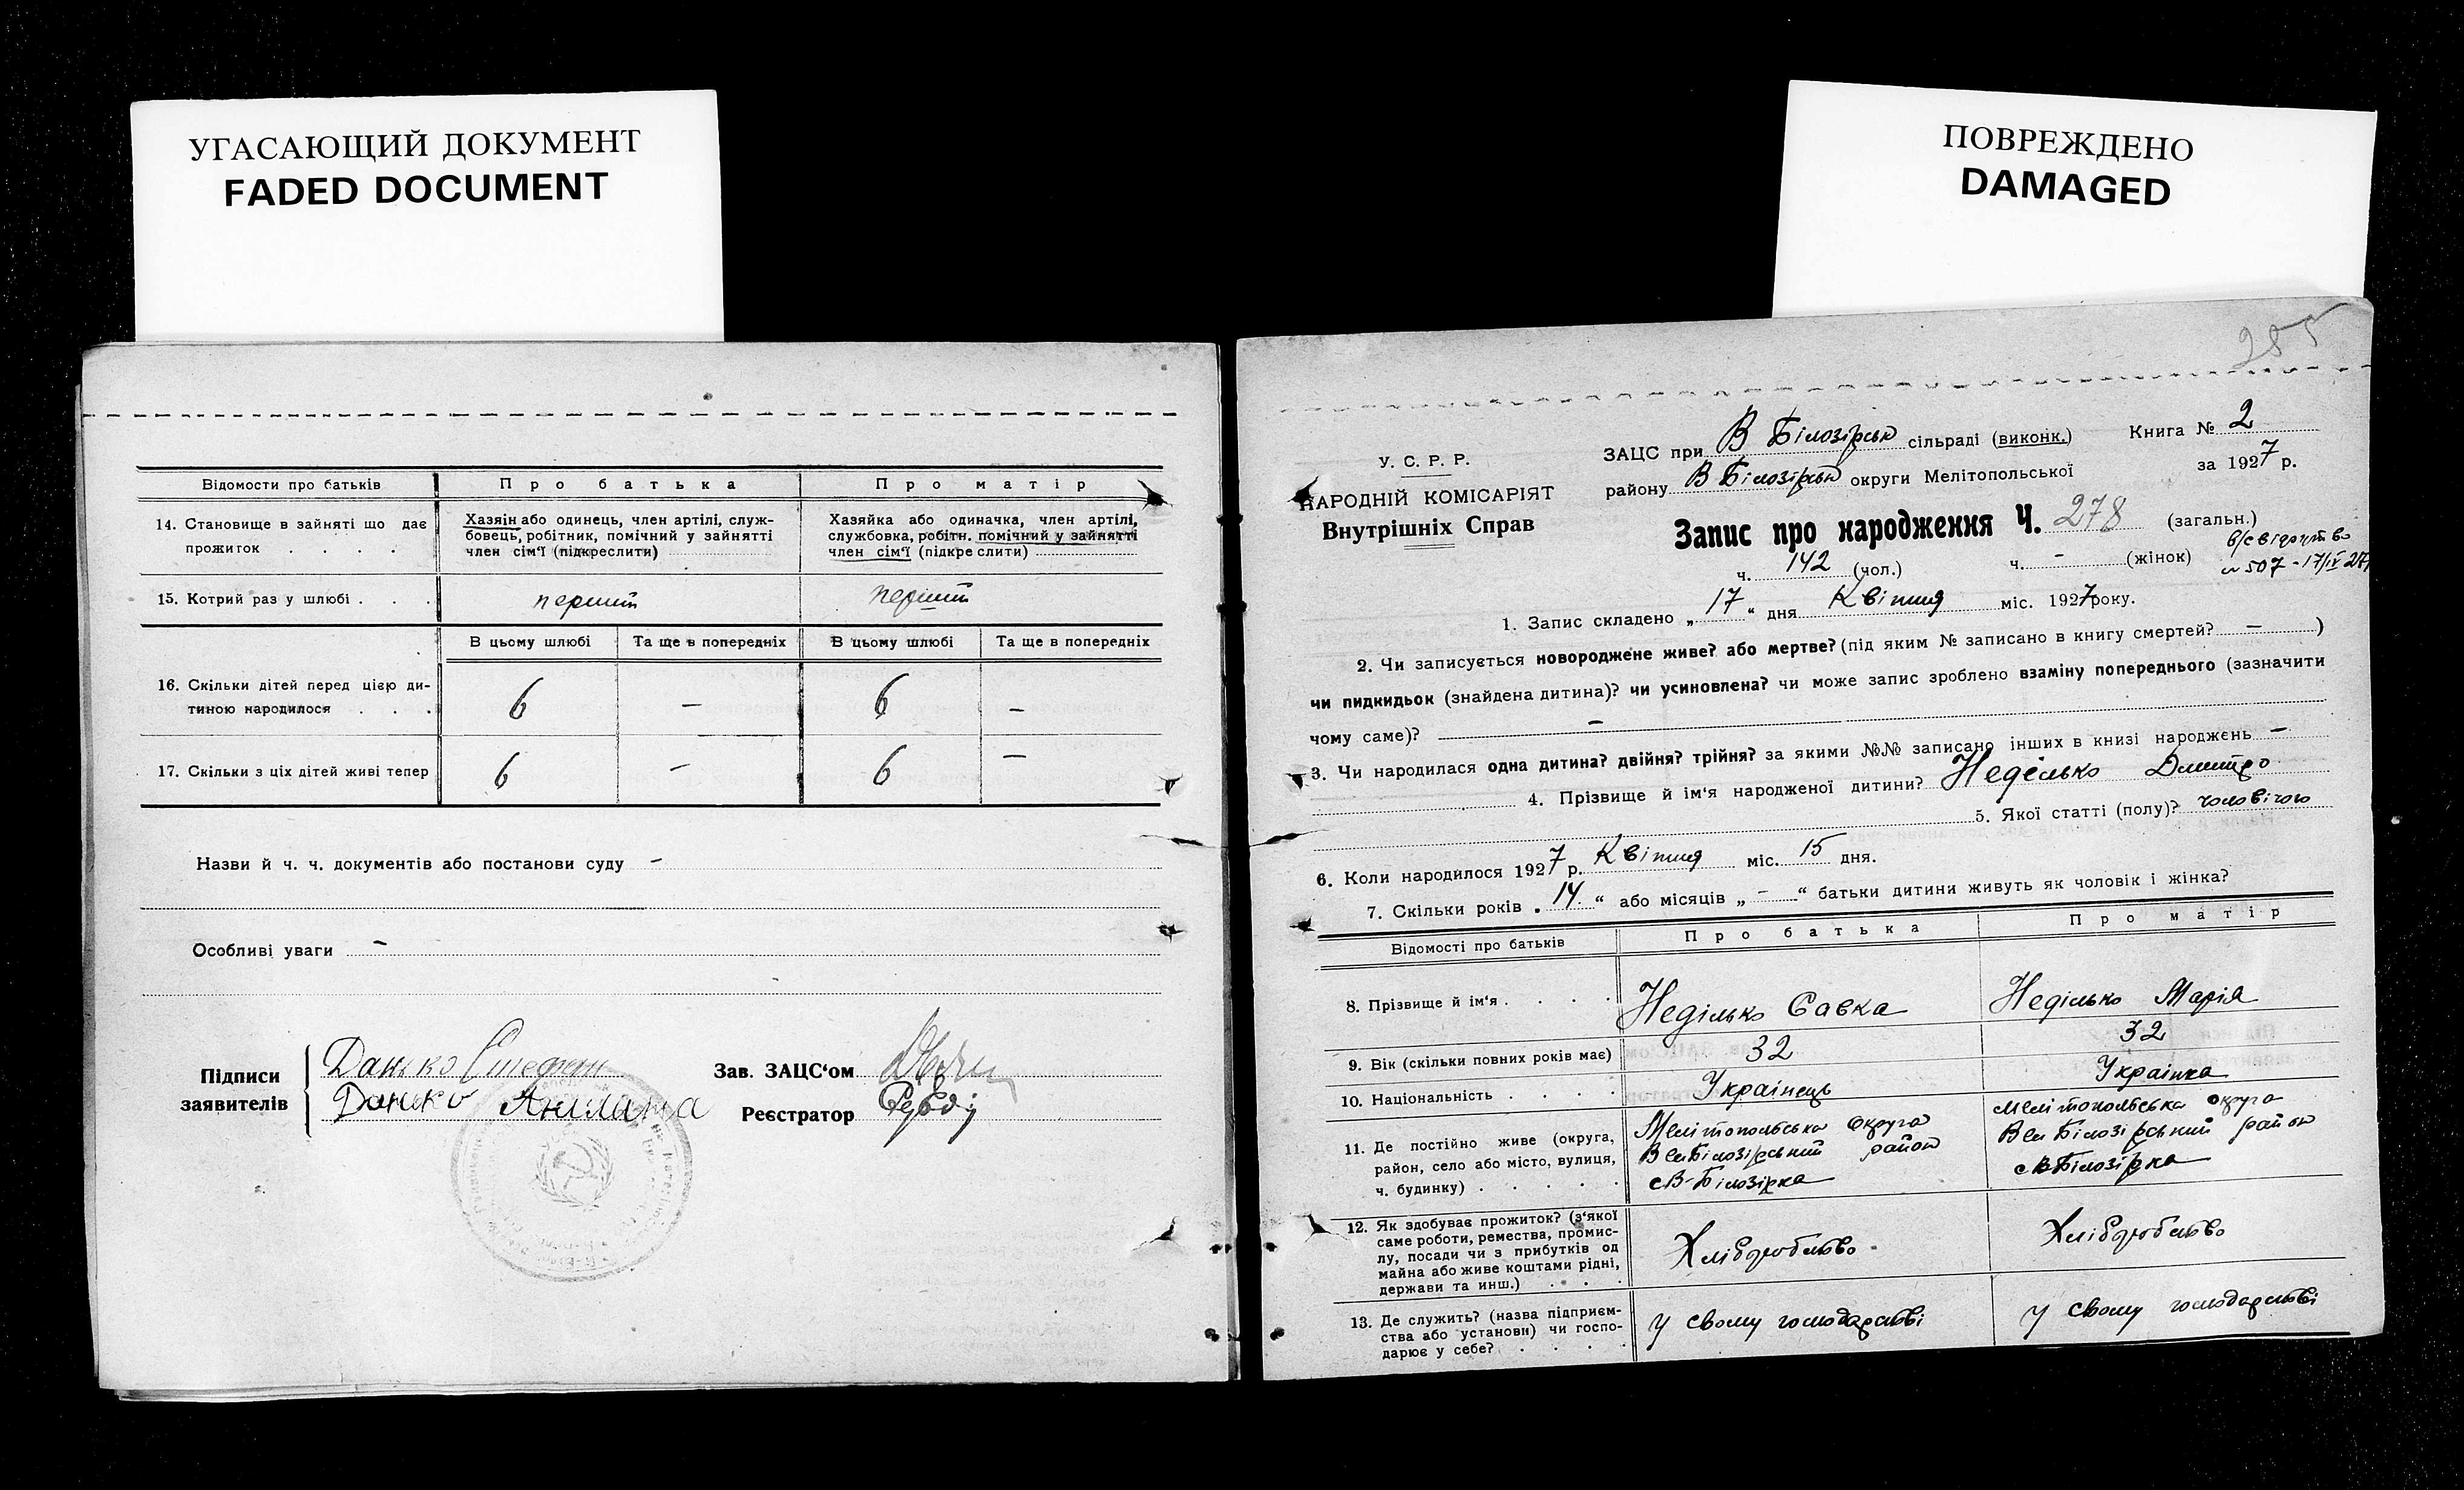 УГАСАЮЩИЙ ДОКУМЕНТ
FADED DOCUMENT
ПОВРЕЖДЕНО
DAMAGED
Відомости про батьків
Про батька
Про матір
14. Становище в зайняті що дає
прожиток . . . .
Хазяін або одинець, член артілі, служ-
бовець, робітник, помічний у зайнятті
член сім'ї (підкреслити)
Хазяйка або одиначка, член артілі,
службовка, робітн. помічний у зайнятті
член сім'ї (підкреслити)
15. Котрий раз у шлюбі . . .
перший
перший
В цьому шлюбі
Та ще в попередніх
В цьому шлюбі
Та ще в попередніх
16. Скільки дітей перед цією ди-
тиною народилося . . .
6 – 6 –
17. Скільки з ціх дітей живі тепер
6 – 6 –
Назви й ч. ч. документів або постанови суду –
Особливі уваги –
Підписи
заявителів
Данько Степан
Данько
Зав. ЗАЦС'ом
Реєстратор
285
У. С. Р. Р.
НАРОДНІЙ КОМІСАРІЯТ
Внутрішніх Справ
ЗАЦС при В Білозірськ сільраді (виконк.) Книга № 2
району В Білозірськ округи Мелітопольської за 1927 р.
Запис про народження Ч. 278 (загальн.)
ч. 142 (чол.) ч. – (жінок)
в/свідоцтво
№ 507 - 17/IV 27
1. Запис складено „ 17 “ дня Квітня міс. 1927 року.
2. Чи записується новороджене живе? або мертве? (під яким № записано в книгу смертей? – )
чи пидкидьок (знайдена дитина)? чи усиновлена? чи може запис зроблено взаміну попереднього (зазначити
чому саме)? –
3. Чи народилася одна дитина? двійня? трійня? за якими №№ записано інших в книзі народжень –
4. Прізвище й ім'я народженої дитини? Неділько Дмитро
5. Якої статті (полу)? чоловічого
6. Коли народилося 1927 р. Квітня міс. 15 дня.
7. Скільки років „ 14 “ або місяців „ – “ батьки дитини живуть як чоловік і жінка?
Відомості про батьків
Про батька
Про матір
8. Прізвище й ім'я . . . .
Неділько Савка
Неділько Марія
9. Вік (скільки повних років має)
32
32
10. Національність . . . .
Українець
Українка
11. Де постійно живе (округа,
район, село або місто, вулиця,
ч. будинку) . . . . .
Мелітопольська округа
Вел Білозірський район
с В-Білозірка
Мелітопольська округа
Вел Білозірський район
с В Білозірка
12. Як здобуває прожиток? (з'якої
саме роботи, ремества, промис-
лу, посади чи з прибутків од
майна або живе коштами рідні,
держави та инш.) . . .
Хліборобство
Хліборобство
13. Де служить? (назва підприєм-
ства або установи) чи госпо-
дарює у себе? . . . .
У свому господарстві
У свому господарстві